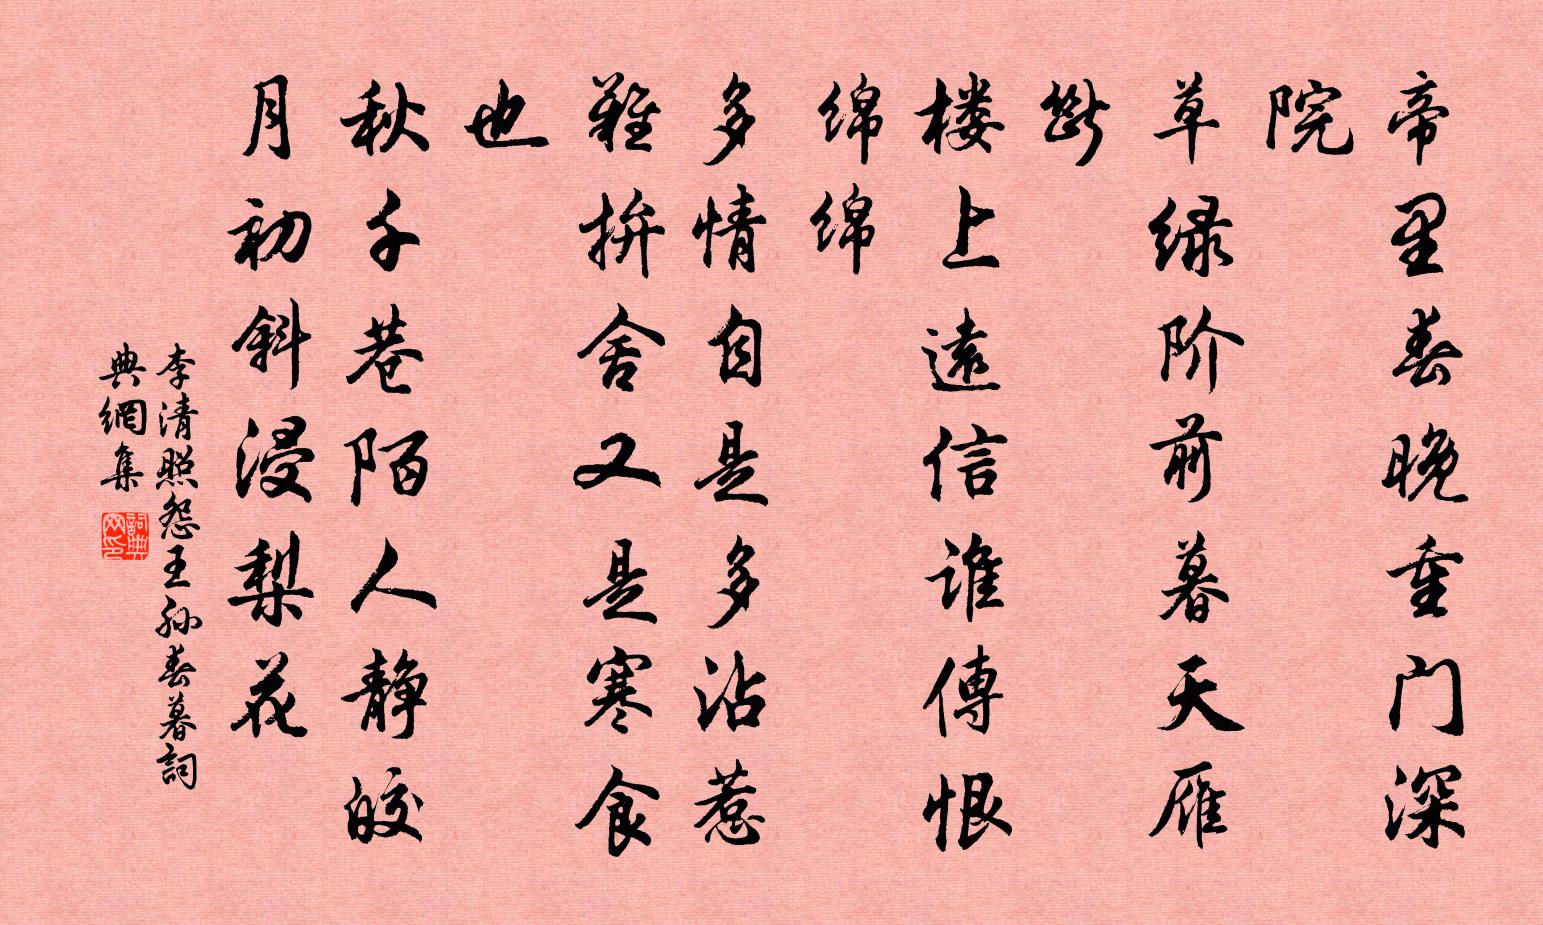 帝里春晚重门深
院
草绿阶前暮天雁
断
楼上遠信谁傳恨
绵绵
多情自是多沾惹
难拚舍又是寒食
也
秋千巷陌人静皎
月初斜浸梨花
李清照怨王孙春暮詞
典網集
詞典網印